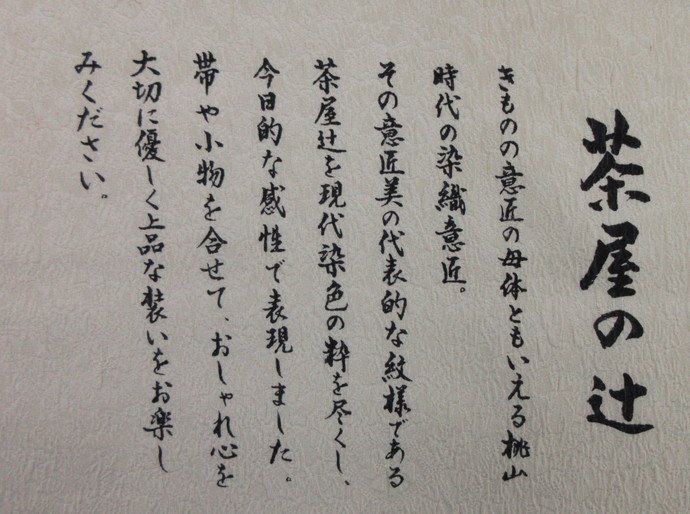 茶屋の辻
きものの意匠の母体ともいえる桃山
時代の染織意匠。
その意匠美の代表的な紋様である
茶屋辻を現代染色の粋を尽くし、
今日的な感性で表現しました。
帯や小物を合せて、おしゃれ心を
大切に優しく上品な装いをお楽し
みください。